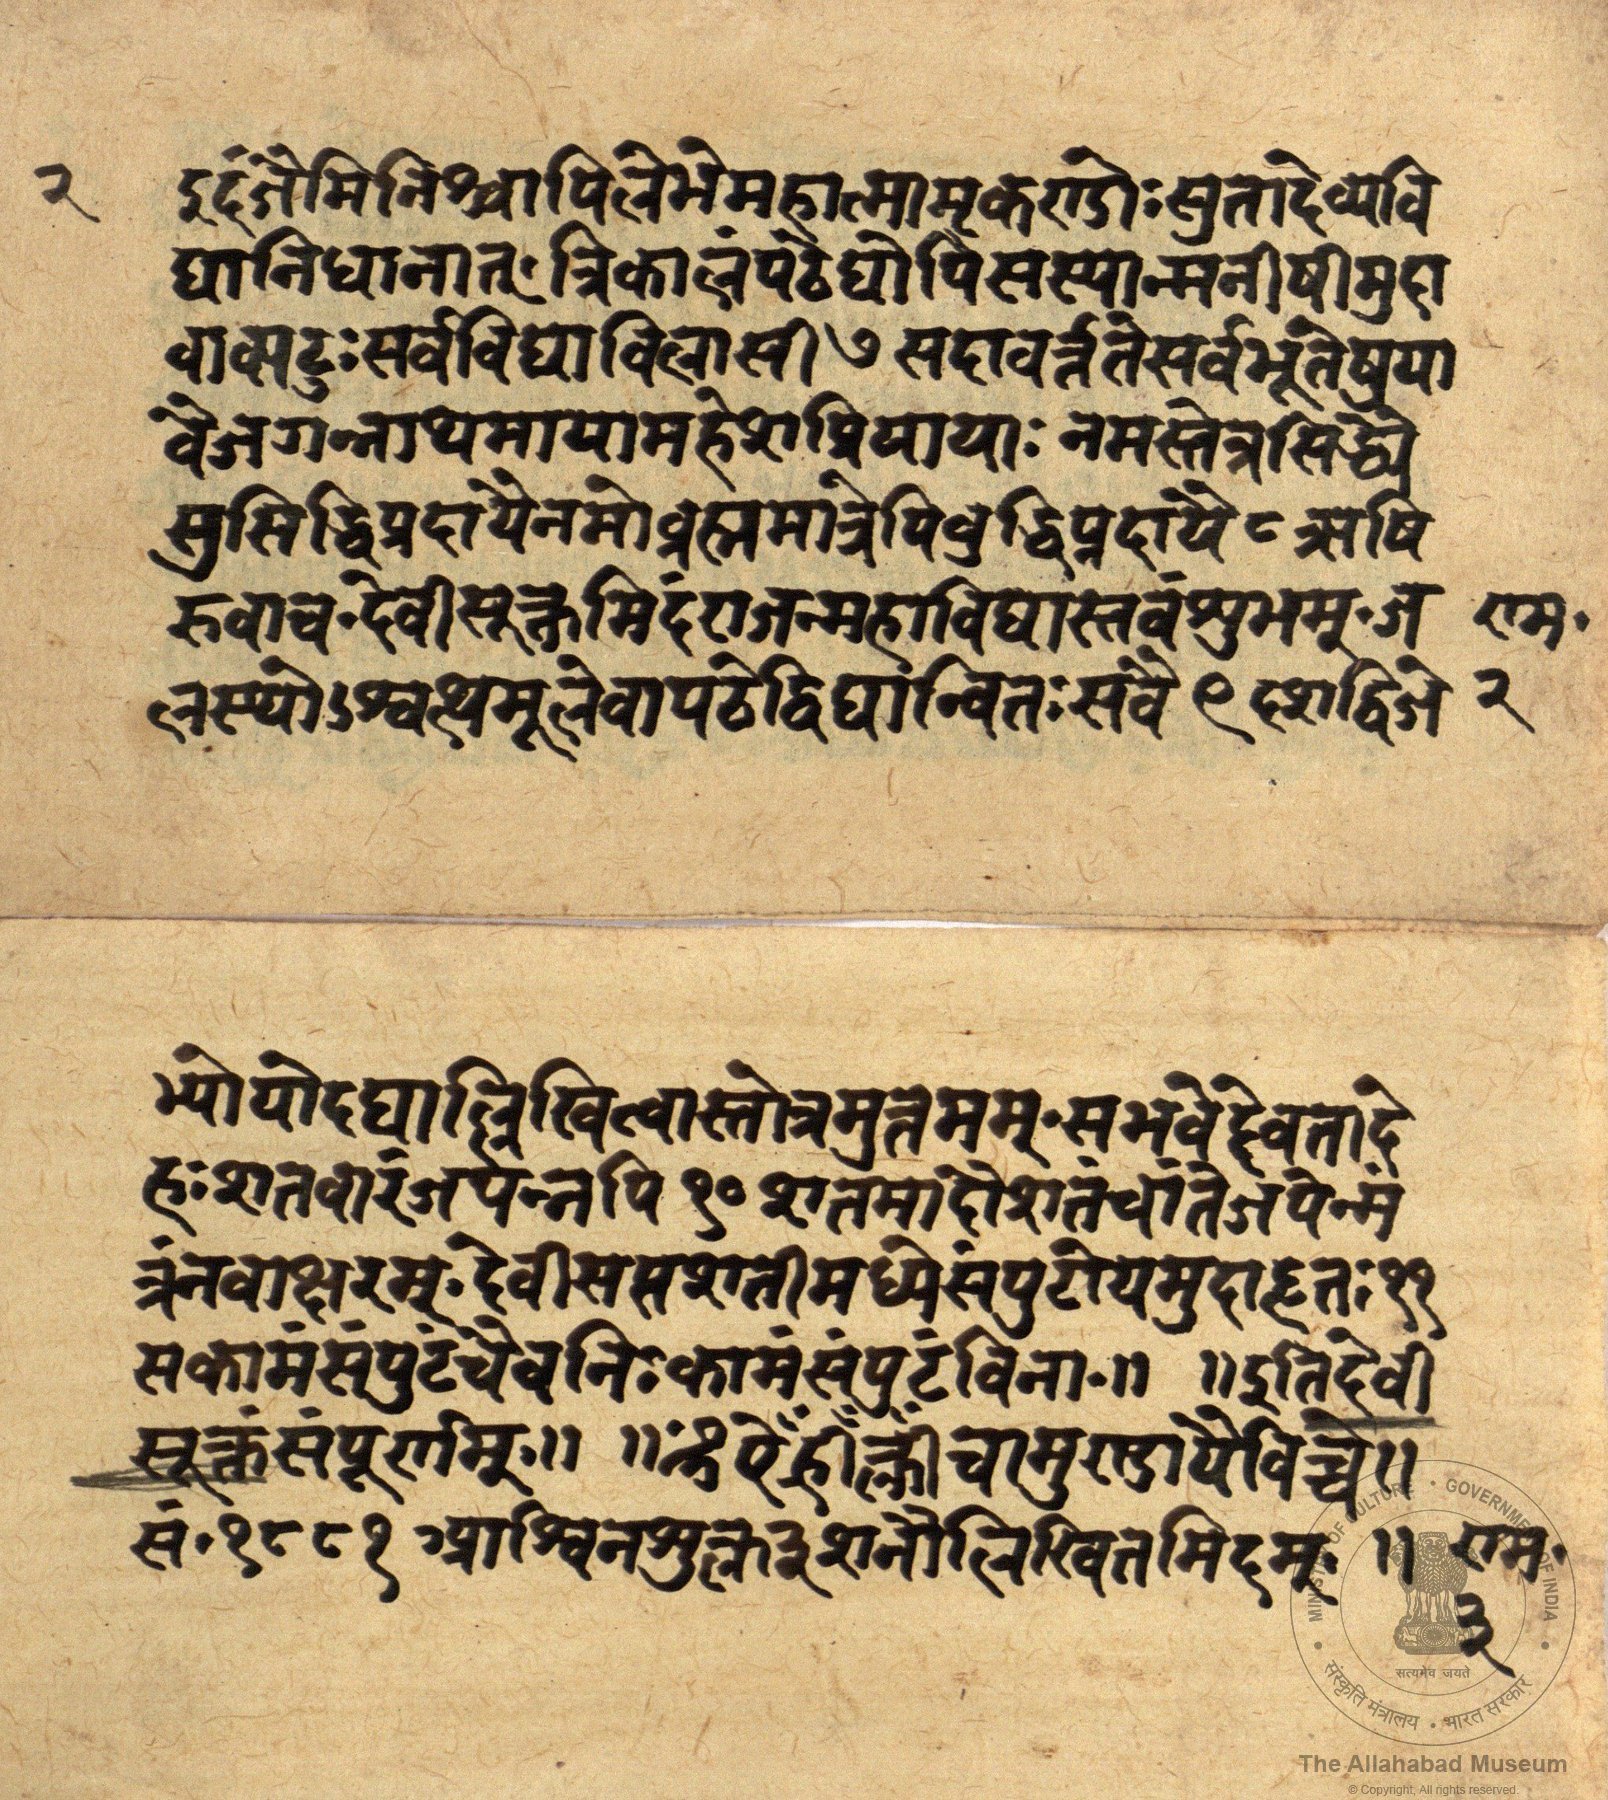 २ दुदं जैमिनिश्चापि लेभे महात्मा मृकण्डोः सुता देव्यवि
द्यानिधानात् · त्रिकालं पठेद्योपि स स्यान्मनीषी मुदा
वाक्पटुः सर्वविद्याविलासी ७ सदा वर्त्तते सर्वभूतेषु या
वै जगन्नाथमाया महेशप्रियायाः नमस्तेत्र सिद्ध्यै
सुसिद्धिप्रदायै नमो व्रह्ममात्रेपि वुद्धिप्रदायै ८ ऋषि
रुवाच · देवीसूक्तमिदं राजन्महाविद्यास्तवं शुभम् · ज राम ·
लस्थोऽश्वत्थमूले वा पठेद्विद्यान्वितः स वै ९ दशद्विजे २
भ्यो यो दद्याल्लिखित्वा स्तोत्रमुत्तमम् · स भवेद्देवतादे
हः शतवारं जपन्नपि १० शतमादौ शतं चांते जपेन्मं
त्रं नवाक्षरम् · देवीसप्तशतीमध्ये संपुटोयमुदाहृतः ११
सकामं संपुटं चैव निःकामं संपुटं विना · ॥ ॥ इति देवी
सूक्तं संपूर्णम् · ॥ ॥ ॐ ऐँ ह्रीँ क्लीँ चामुण्डायै विच्चे ॥
सं · १८८१ आश्विनशुक्ल ३ शनौ लिखितमिदम् · ॥ राम ·
३
MINISTRY OF CULTURE · GOVERNMENT OF INDIA
सत्यमेव जयते
संस्कृति मंत्रालय · भारत सरकार
The Allahabad Museum
© Copyright, All rights reserved.